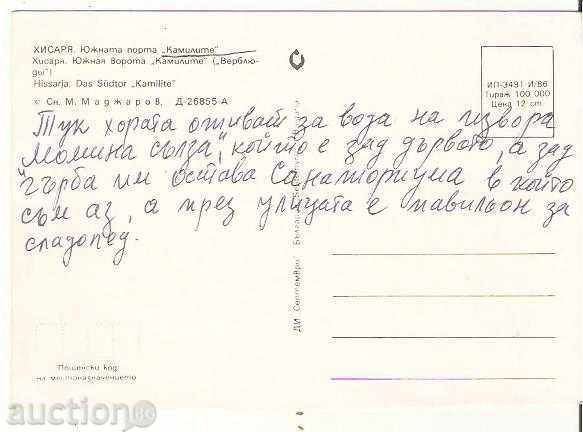 ХИСАРЯ. Южната порта „Камилите"
Хисаря. Южная Ворота „Камилите" („Верблю-
ды")
Hissarja. Das Südtor „Kamilite"
с Сн. М. Маджаров, Д-26855-А
ИП-3491-И/86
Тираж 100 000
Цена 12 cm
Тук хората отиват за вода на извора
"Момина сълза", който е зад дървото, а зад
гърба им остава Санаториума в който
съм аз, а през улицата е павильон за
сладолед.
ДИ „Септември"
Пощенски код
на местоназначението
auction.bg